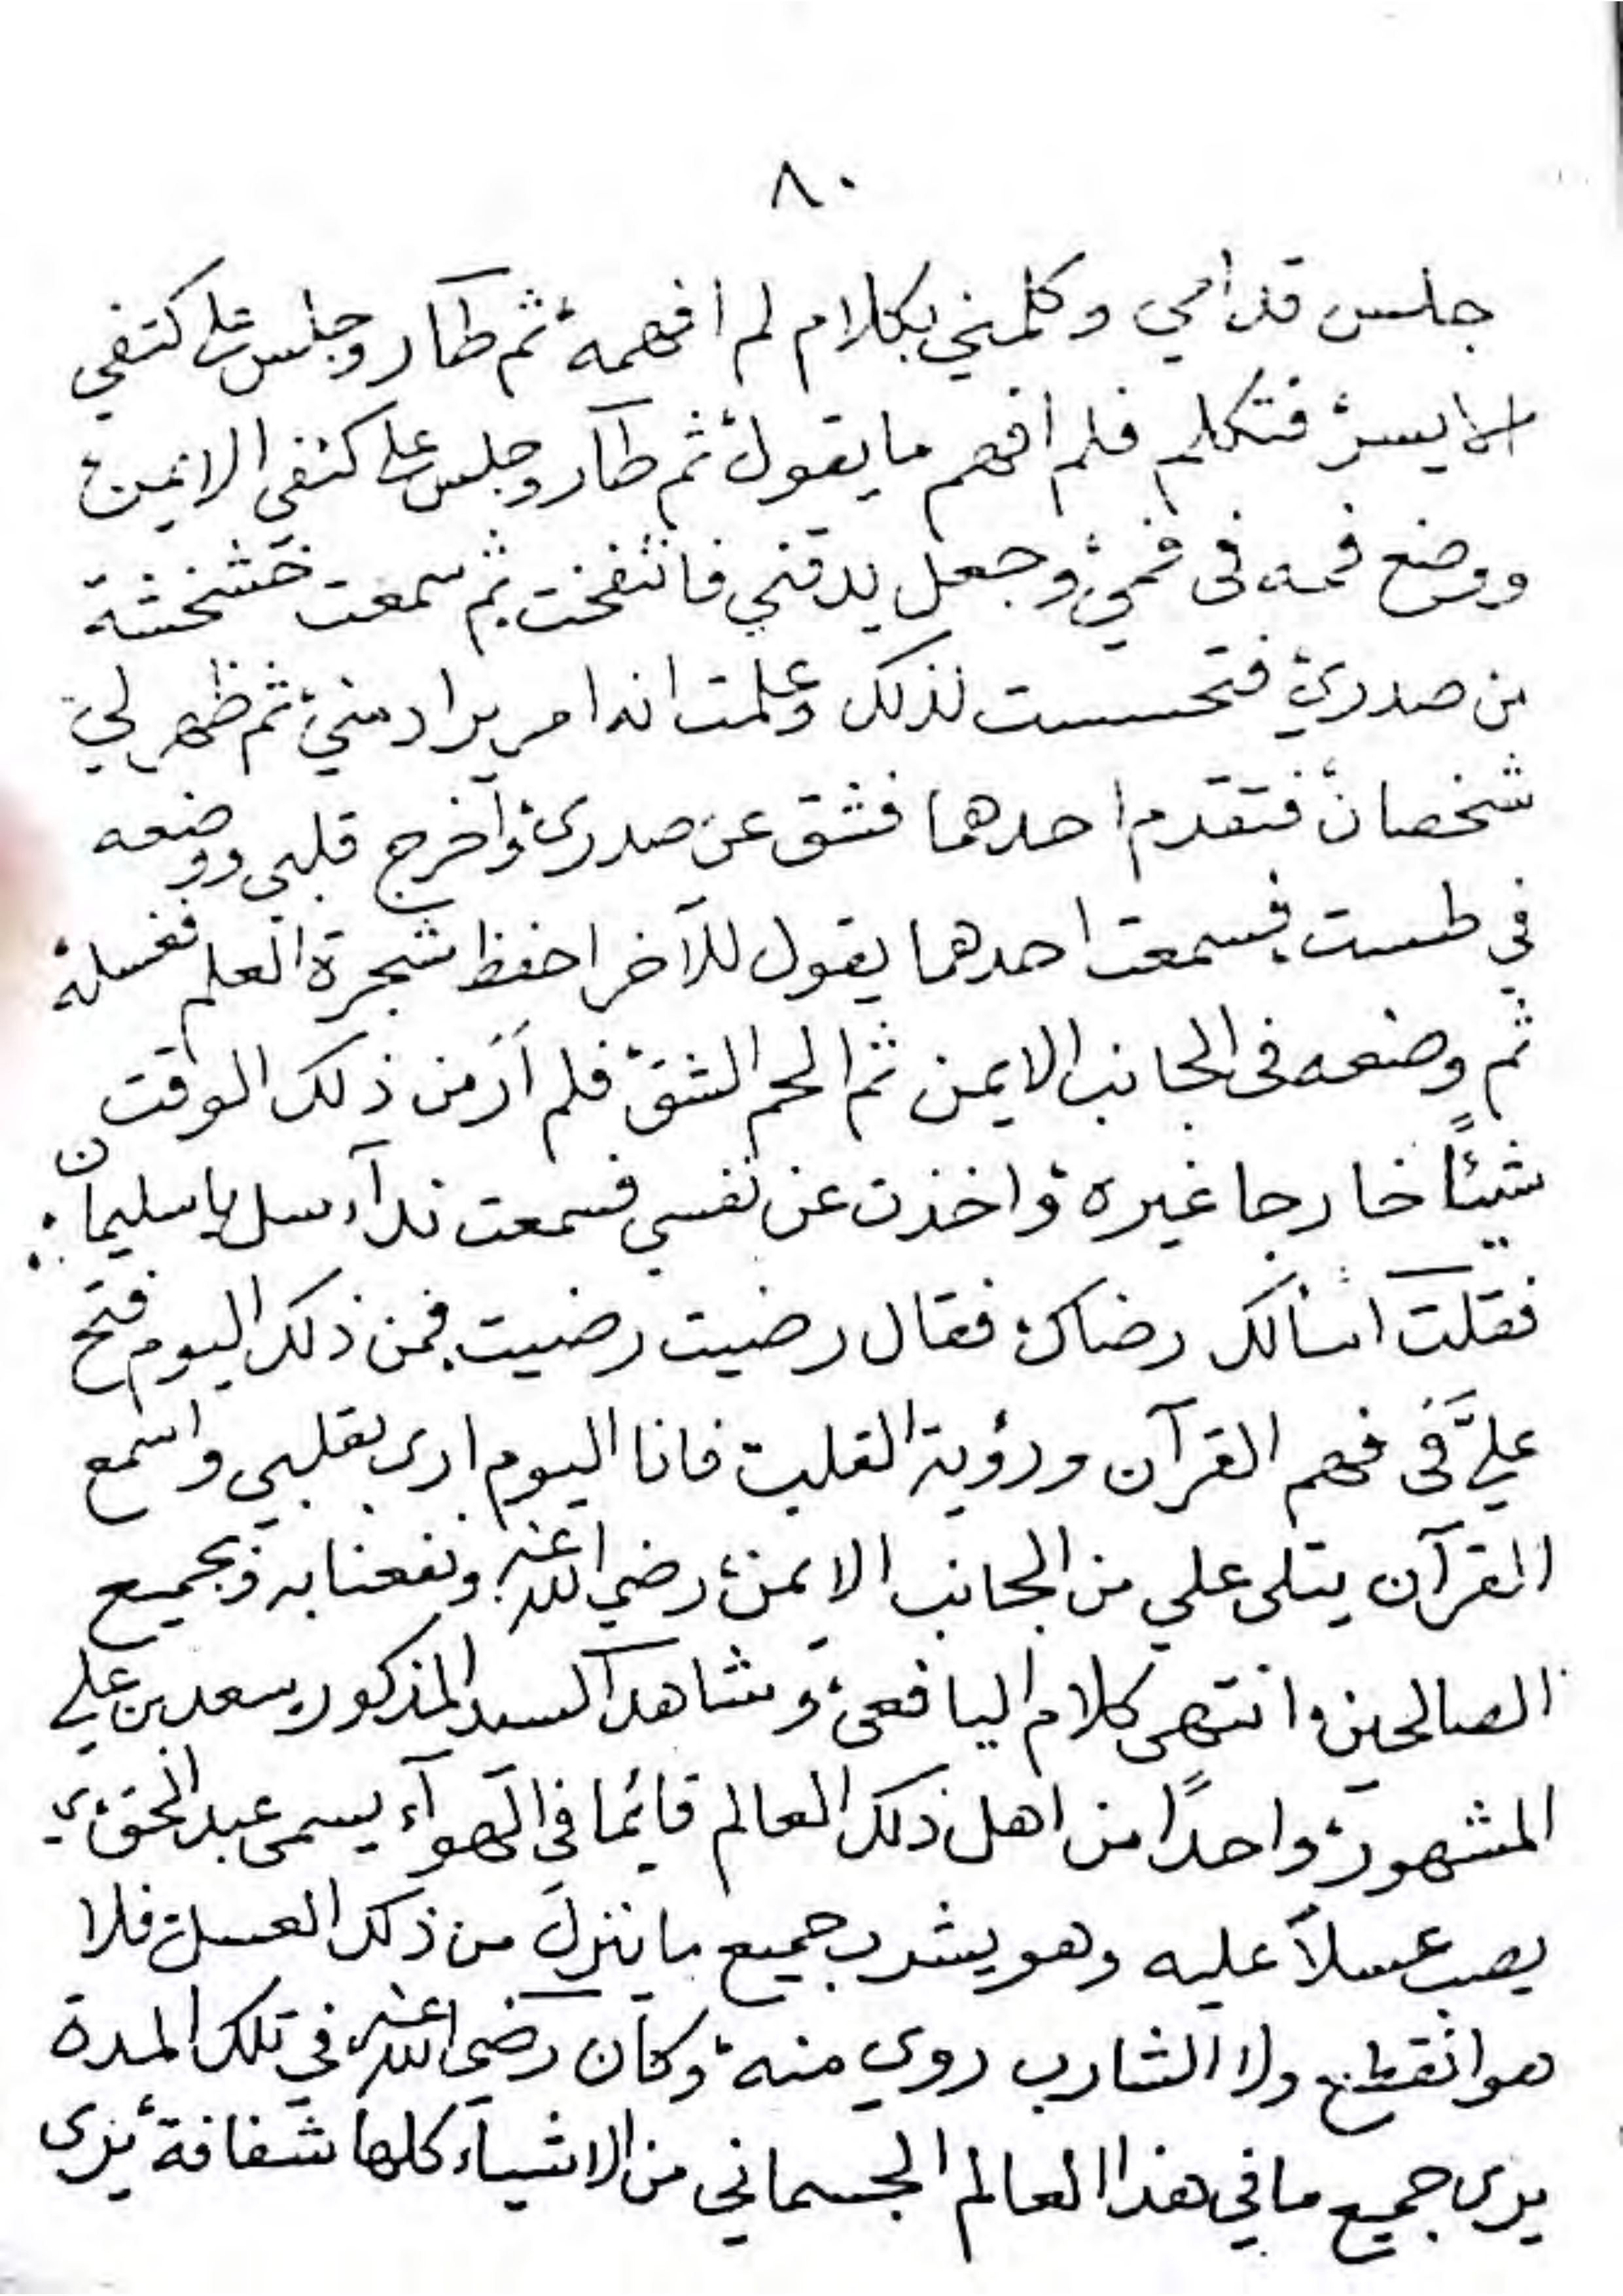 ٨٠
جلس قدامي وكلمني بكلام لم افهمه، ثم طار وجلس على كتفي
الايسر، فتكلم فلم افهم ما يقول، ثم طار وجلس على كتفي الايمن،
ووضع فمه فى فمي، وجعل يدقني فانتفخت، ثم سمعت خشخشة
من صدري، فتحسست لذلك وعلمت انه امر يراد مني، ثم ظهر لي
شخصان، فتقدم احدهما فشق عن صدرى، وآخرج قلبي ووضعه
في طست، فسمعت احدهما يقول للآخر احفظ شجرة العلم فغسله،
ثم وضعه فى الجانب الايمن ثم الحم الشق، فلم اَرَ من ذلك الوقت
شيئًا خارجا غيره، واخذت عن نفسي فسمعت ندآء سل يا سليمان:
فقلت اسألك رضاك، فقال رضيت رضيت، فمن ذلك اليوم فتح
عليَّ فى فهم القرآن ورؤية القلب، فانا اليوم ارى بقلبي واسمع
القرآن يتلى علي من الجانب الايمن، رضي الله عنه، ونفعنا به، وبجميع
الصالحين، انتهى كلام اليافعى، وشاهد السيد المذكور، سعد بن علي
المشهور، واحدًا من اهل ذلك العالم قائما في الهوآء يسمى عبد الحق،
يصب عسلاً عليه وهو يشرب جميع ما ينزل من ذلك العسل، فلا
هو انقطع ولا الشارب روي منه، وكان رضي الله عنه، في تلك المدة
يرى جميع ما في هذا العالم الجسماني من الاشيآء كلها شفافة، يرى